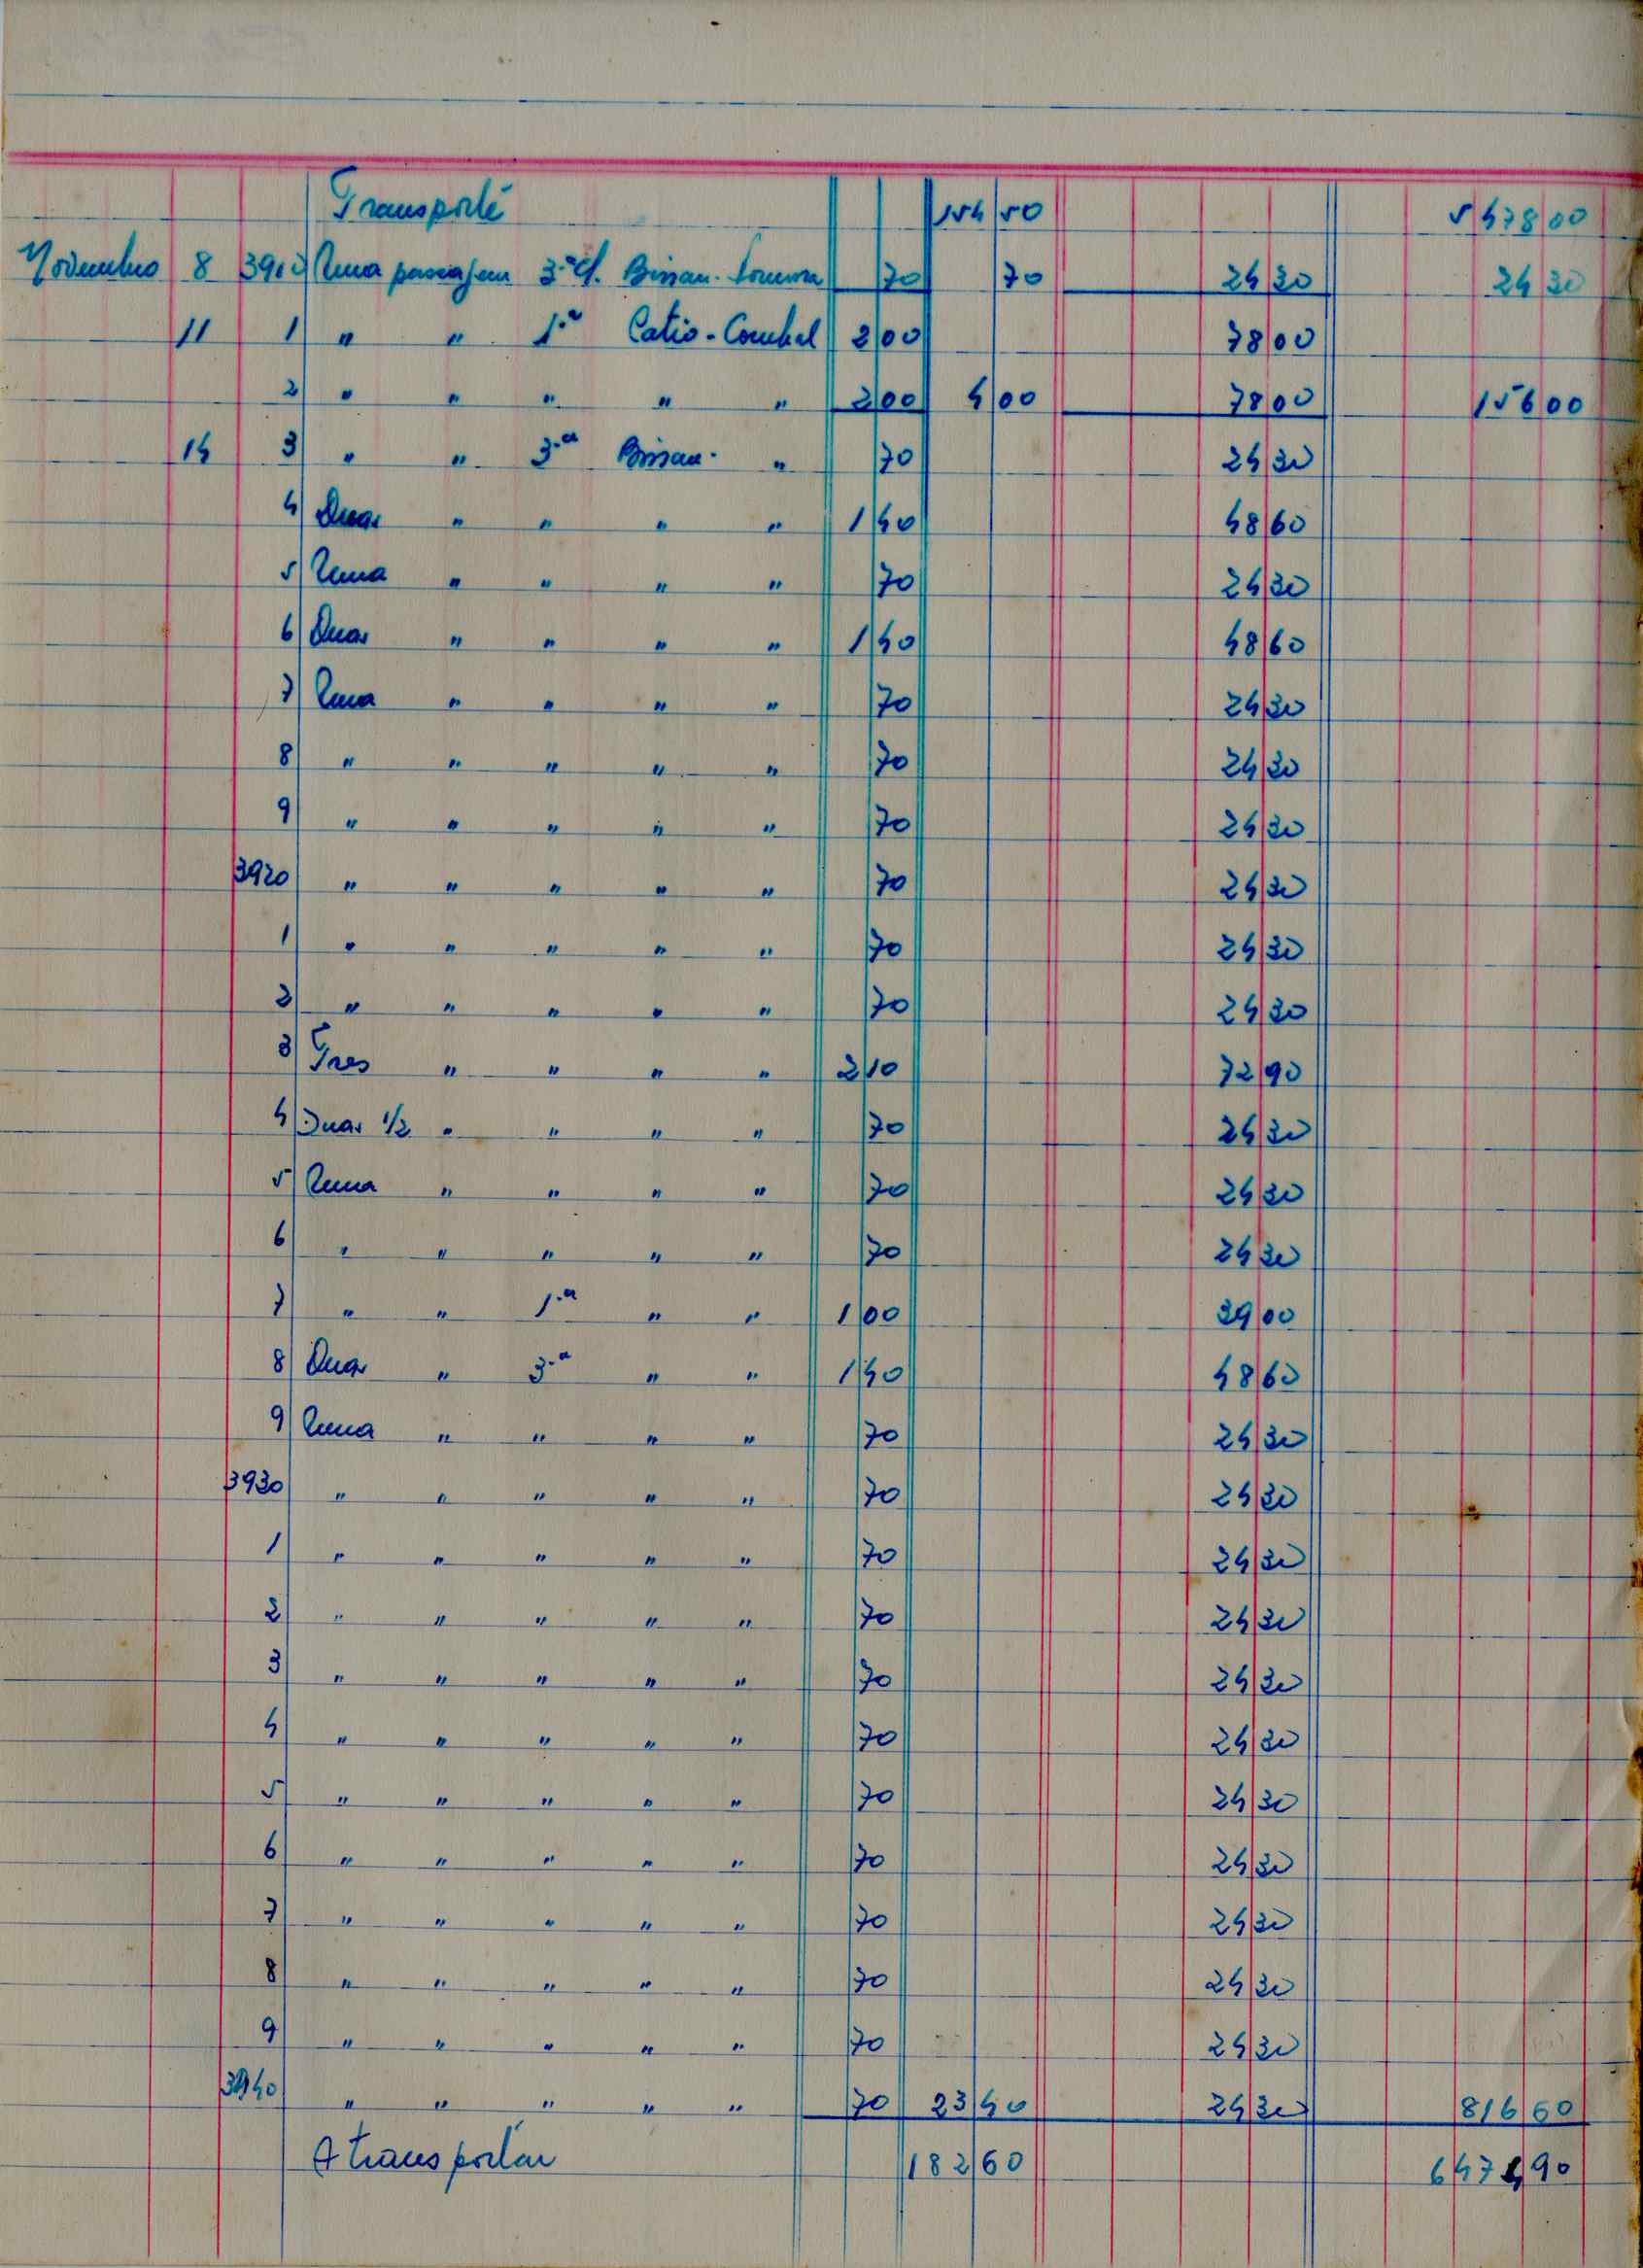 Transporte 154 50 5 478 00
Novembro 8 3910 Uma passajem 3.ª cl. Bissau- 70 70 24 30 24 30
11 1 " " 1.ª Catio- 2 00 78 00
2 " " " " " 2 00 4 00 78 00 156 00
14 3 " " 3.ª Bissau- " 70 24 30
4 Duas " " " " 1 40 48 60
5 Uma " " " " 70 24 30
6 Duas " " " " 1 40 48 60
7 Uma " " " " 70 24 30
8 " " " " " 70 24 30
9 " " " " " 70 24 30
3920 " " " " " 70 24 30
1 " " " " " 70 24 30
2 " " " " " 70 24 30
3 Tres " " " " 2 10 72 90
4 Duas 1/2 " " " " 70 24 30
5 Uma " " " " 70 24 30
6 " " " " " 70 24 30
7 " " 1.ª " " 1 00 39 00
8 Duas " 3.ª " " 1 40 48 60
9 Uma " " " " 70 24 30
3930 " " " " " 70 24 30
1 " " " " " 70 24 30
2 " " " " " 70 24 30
3 " " " " " 70 24 30
4 " " " " " 70 24 30
5 " " " " " 70 24 30
6 " " " " " 70 24 30
7 " " " " " 70 24 30
8 " " " " " 70 24 30
9 " " " " " 70 24 30
3940 " " " " " 70 23 40 24 30 816 60
A transportar 182 60 6 474 90